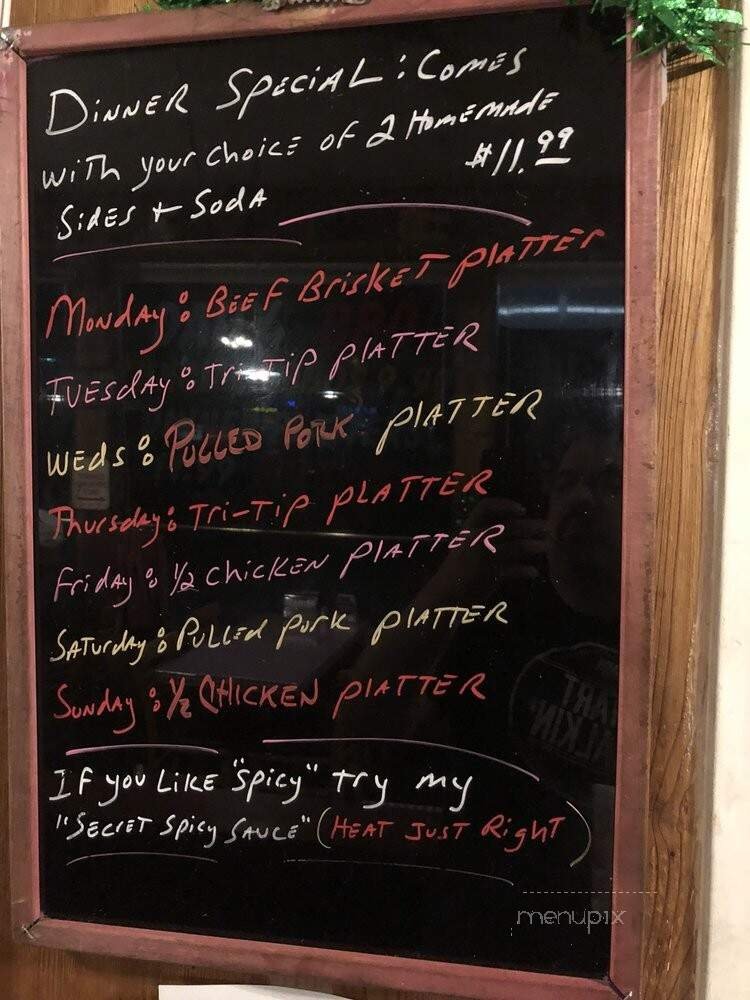 DINNER SPECIAL: COMES
WITH your CHOICE OF 2 HOMEMADE
SIDES + SODA
$11.99
MONDAY: BEEF BRISKET PLATTER
TUESDAY: Tri-TIP PLATTER
WEDS: PULLED PORK PLATTER
Thursday: Tri-TIP PLATTER
Friday: 1/2 CHICKEN PLATTER
SATURDAY: PULLED PORK PLATTER
SUNDAY: 1/2 CHICKEN PLATTER
IF you LIKE "SPICY" Try my
"SECRET SPICY SAUCE" (HEAT JUST Right)
menupix